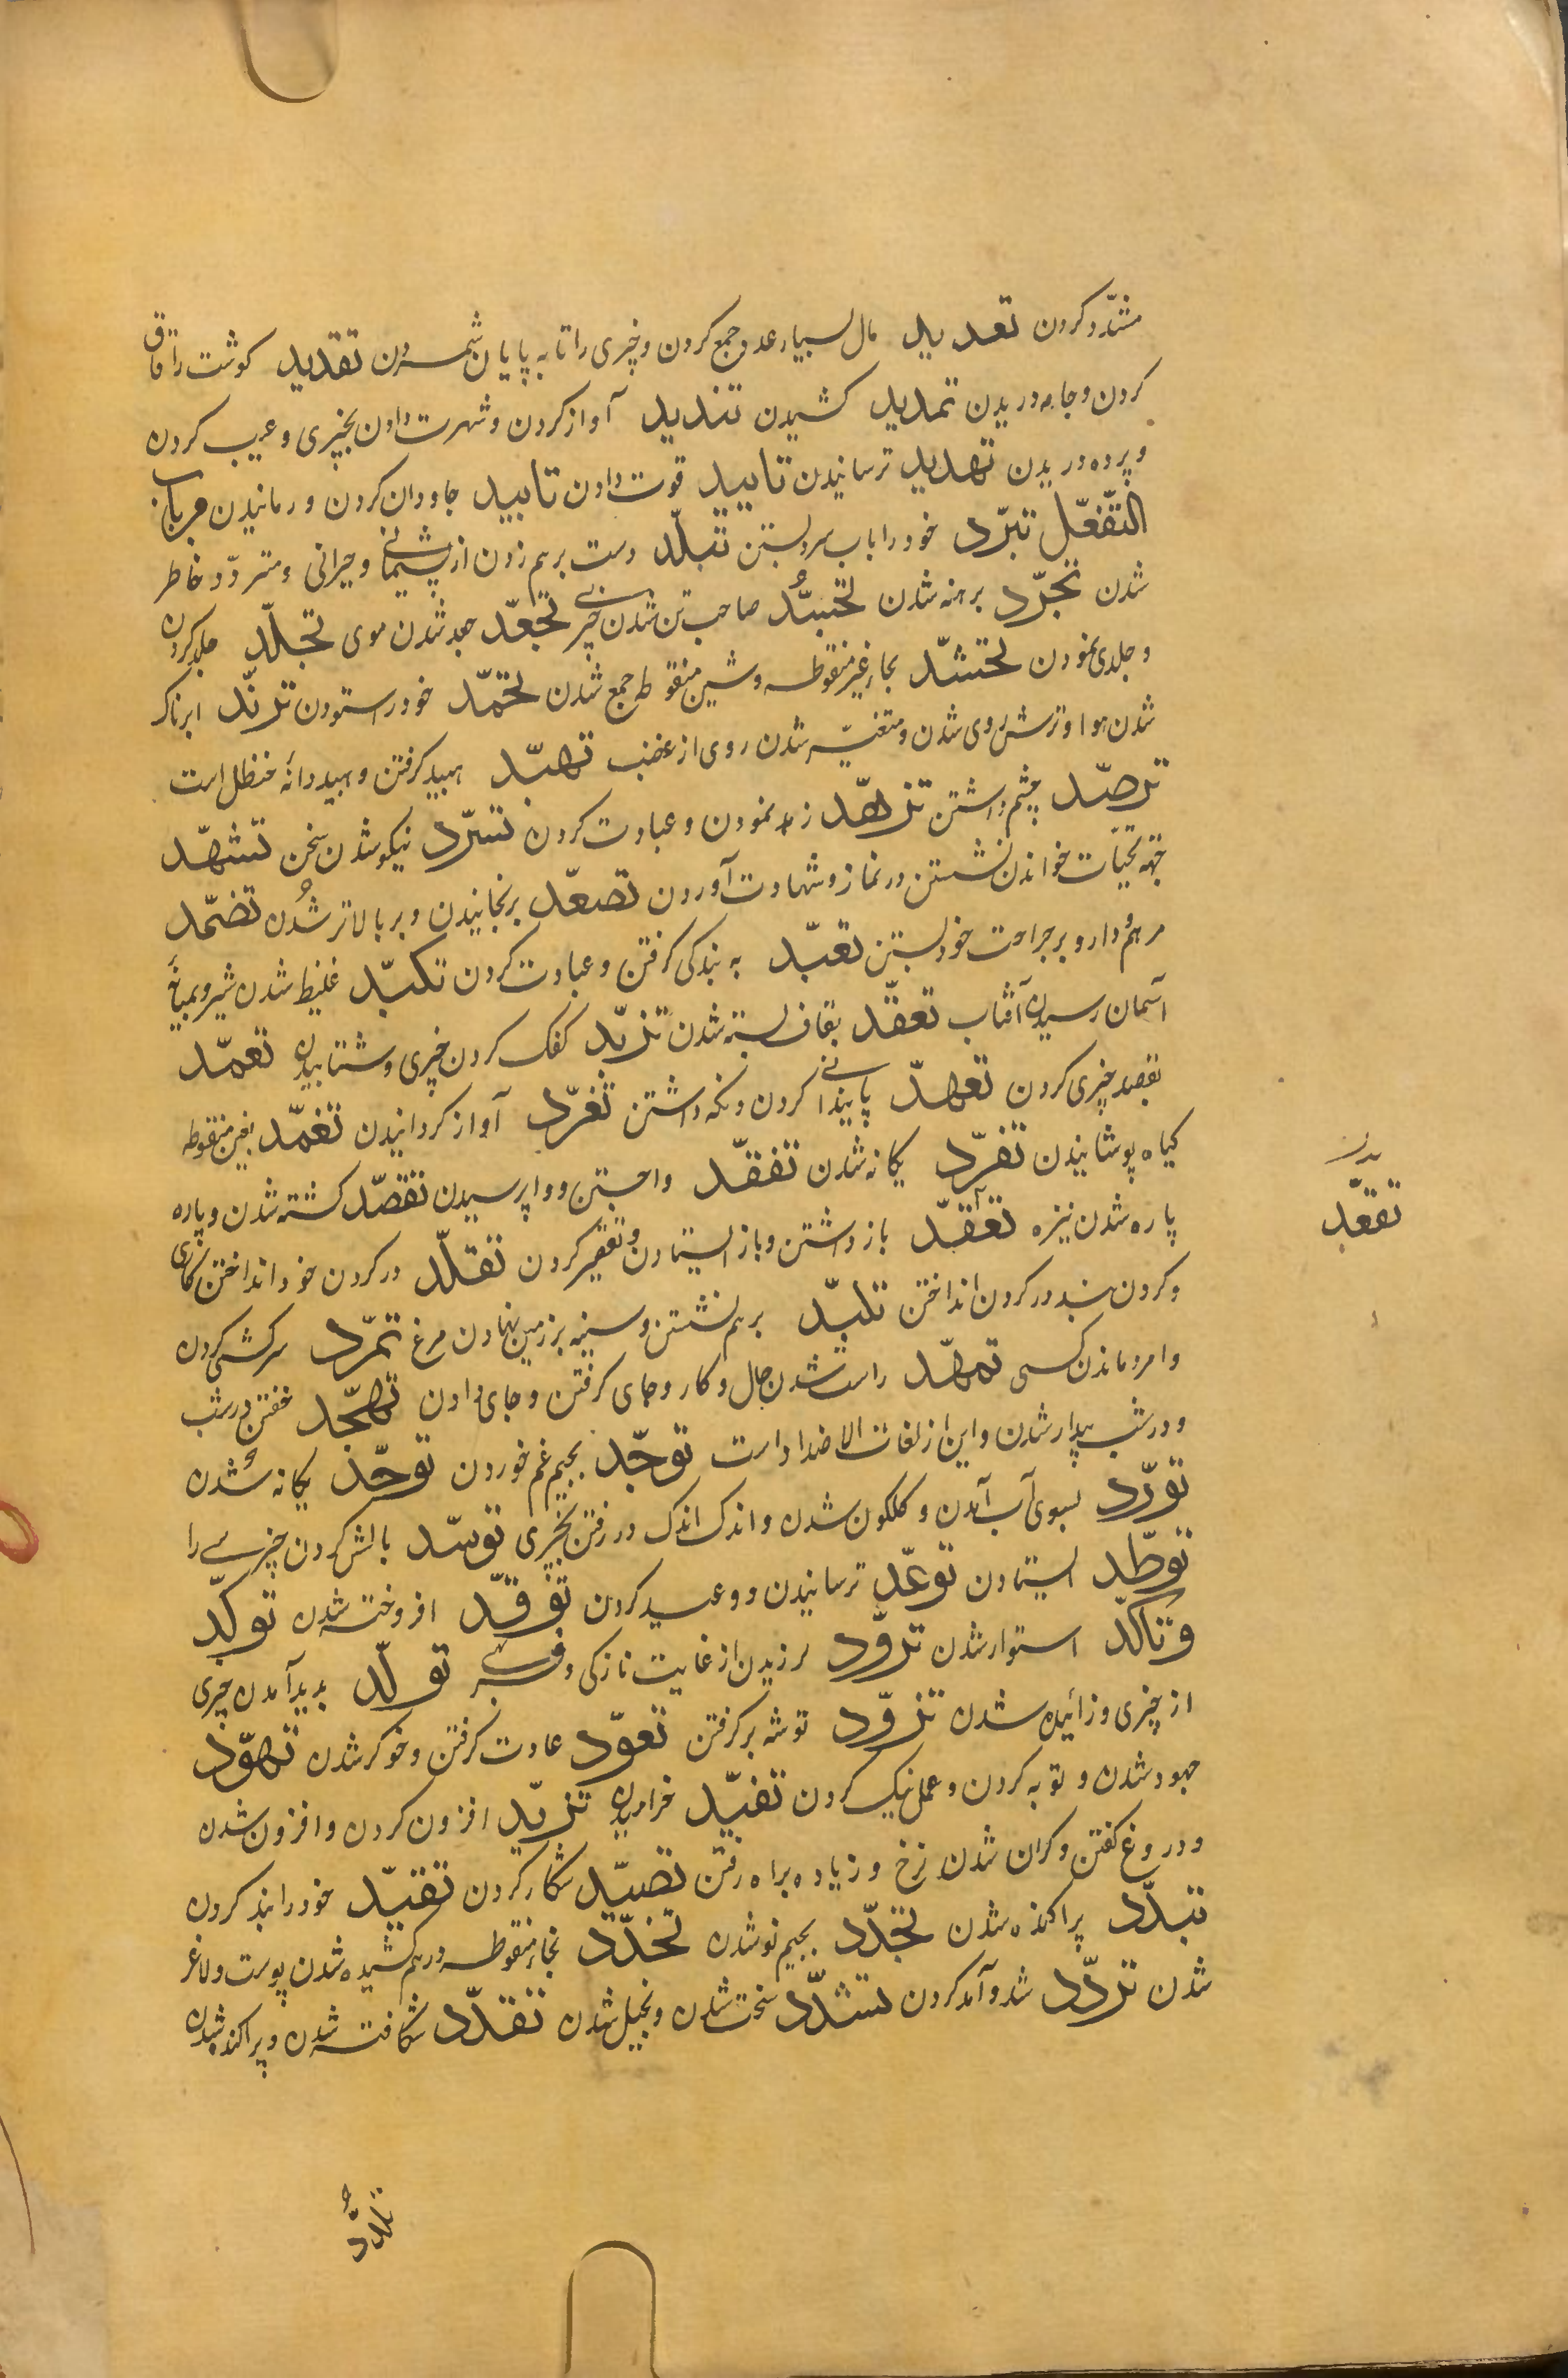 مشدّد کردن تعدید مال بسیار عدو جمع کردن و چیزی را تا به پایان شمردن تقدید کوشت را قاق
کردن و جامه دریدن تمدید کشیدن تندید آواز کردن و شهرت دادن بچیزی و عیب کردن
و پرده دریدن تهدید ترسانیدن تایید قوت دادن تابید جاودان کردن و رمانیدن من باب
التّفعّل تبرّد خود را باب سرد بستن تبلّد دست برهم زدن از پشیمانی و حیرانی و متردّد خاطر
شدن تجرّد برهنه شدن تجسّد صاحب تن شدن چیزی تجعّد جعد شدن موی تجلّد جلد کردن
و جلدی نمودن تحشّد بحاء غیر منقوطه و شین منقوطه جمع شدن تحمّد خود را ستودن تربّد ابرناک
شدن هوا و ترش روی شدن و متغیّر شدن روی از غضب تهبّد هبید کرفتن و هبید دانهٔ حنظل است
ترصّد چشم داشتن تزهّد زهد نمودن و عبادت کردن تسرّد نیکو شدن سخن تشهّد
جهة تحیّات خواندن نشستن در نماز و شهادت آوردن تصعّد برنجانیدن و بر بالا تر شدن تضمّد
مرهم دارو بر جراحت خود بستن تعبّد به بندکی کرفتن و عبادت کردن تکبّد غلیظ شدن شیر و بمیانهٔ
آسمان رسیدن آفتاب تعقّد بقاف بسته شدن تزبّد کفک کردن چیزی و شتابیدن تعمّد
بقصد چیزی کردن تعهّد پایندانی کردن و نکه داشتن تغرّد آواز کردانیدن تغمّد بغین منقوطه
کیاه پوشانیدن تفرّد یکانه شدن تفقّد واجستن و واپرسیدن تقصّد کشته شدن و پاره
پاره شدن نیزه تقعّد باز داشتن و باز ایستادن و تقصیر کردن تقلّد در کردن خود انداختن کاری
و کردن بند در کردن انداختن تلبّد برهم نشستن و سینه بر زمین نهادن مرغ تمرّد سرکشی کردن
و امرد ماندن کسی تمهّد راست شدن حال و کار و جای کرفتن و جای دادن تهجّد خفتن در شب
و در شب بیدار شدن و این از لغات الاضداد است توجّد بجیم غم خوردن توحّد یکانه شدن
تورّد بسوی آب آمدن و کلکون شدن و اندک اندک در رفتن بچیزی توسّد بالش کردن چیزی را
توطّد ایستادن توعّد ترسانیدن و وعید کردن توقّد افروخته شدن توکّد
و تاکّد استوار شدن تروّد لرزیدن از غایت نازکی و فربهی تولّد بدید آمدن چیزی
از چیزی و زائیده شدن تزوّد توشه بر کرفتن تعوّد عادت کرفتن و خوکر شدن تهوّد
جهود شدن و توبه کردن و عمل نیک کردن تفیّد خرامیدن تزیّد افزون کردن و افزون شدن
و دروغ کفتن و کران شدن نرخ و زیاده براه رفتن تصیّد شکار کردن تقیّد خود را بند کردن
تبدّد پراکنده شدن تجدّد بجیم نو شدن تخدّد بخاء منقوطه درهم کشیده شدن پوست و لاغر
شدن تردّد شد و آمد کردن تشدّد سخت شدن و بخیل شدن تقدّد شکافته شدن و پراکنده شدن
بدل
تقعّد
تلدّد